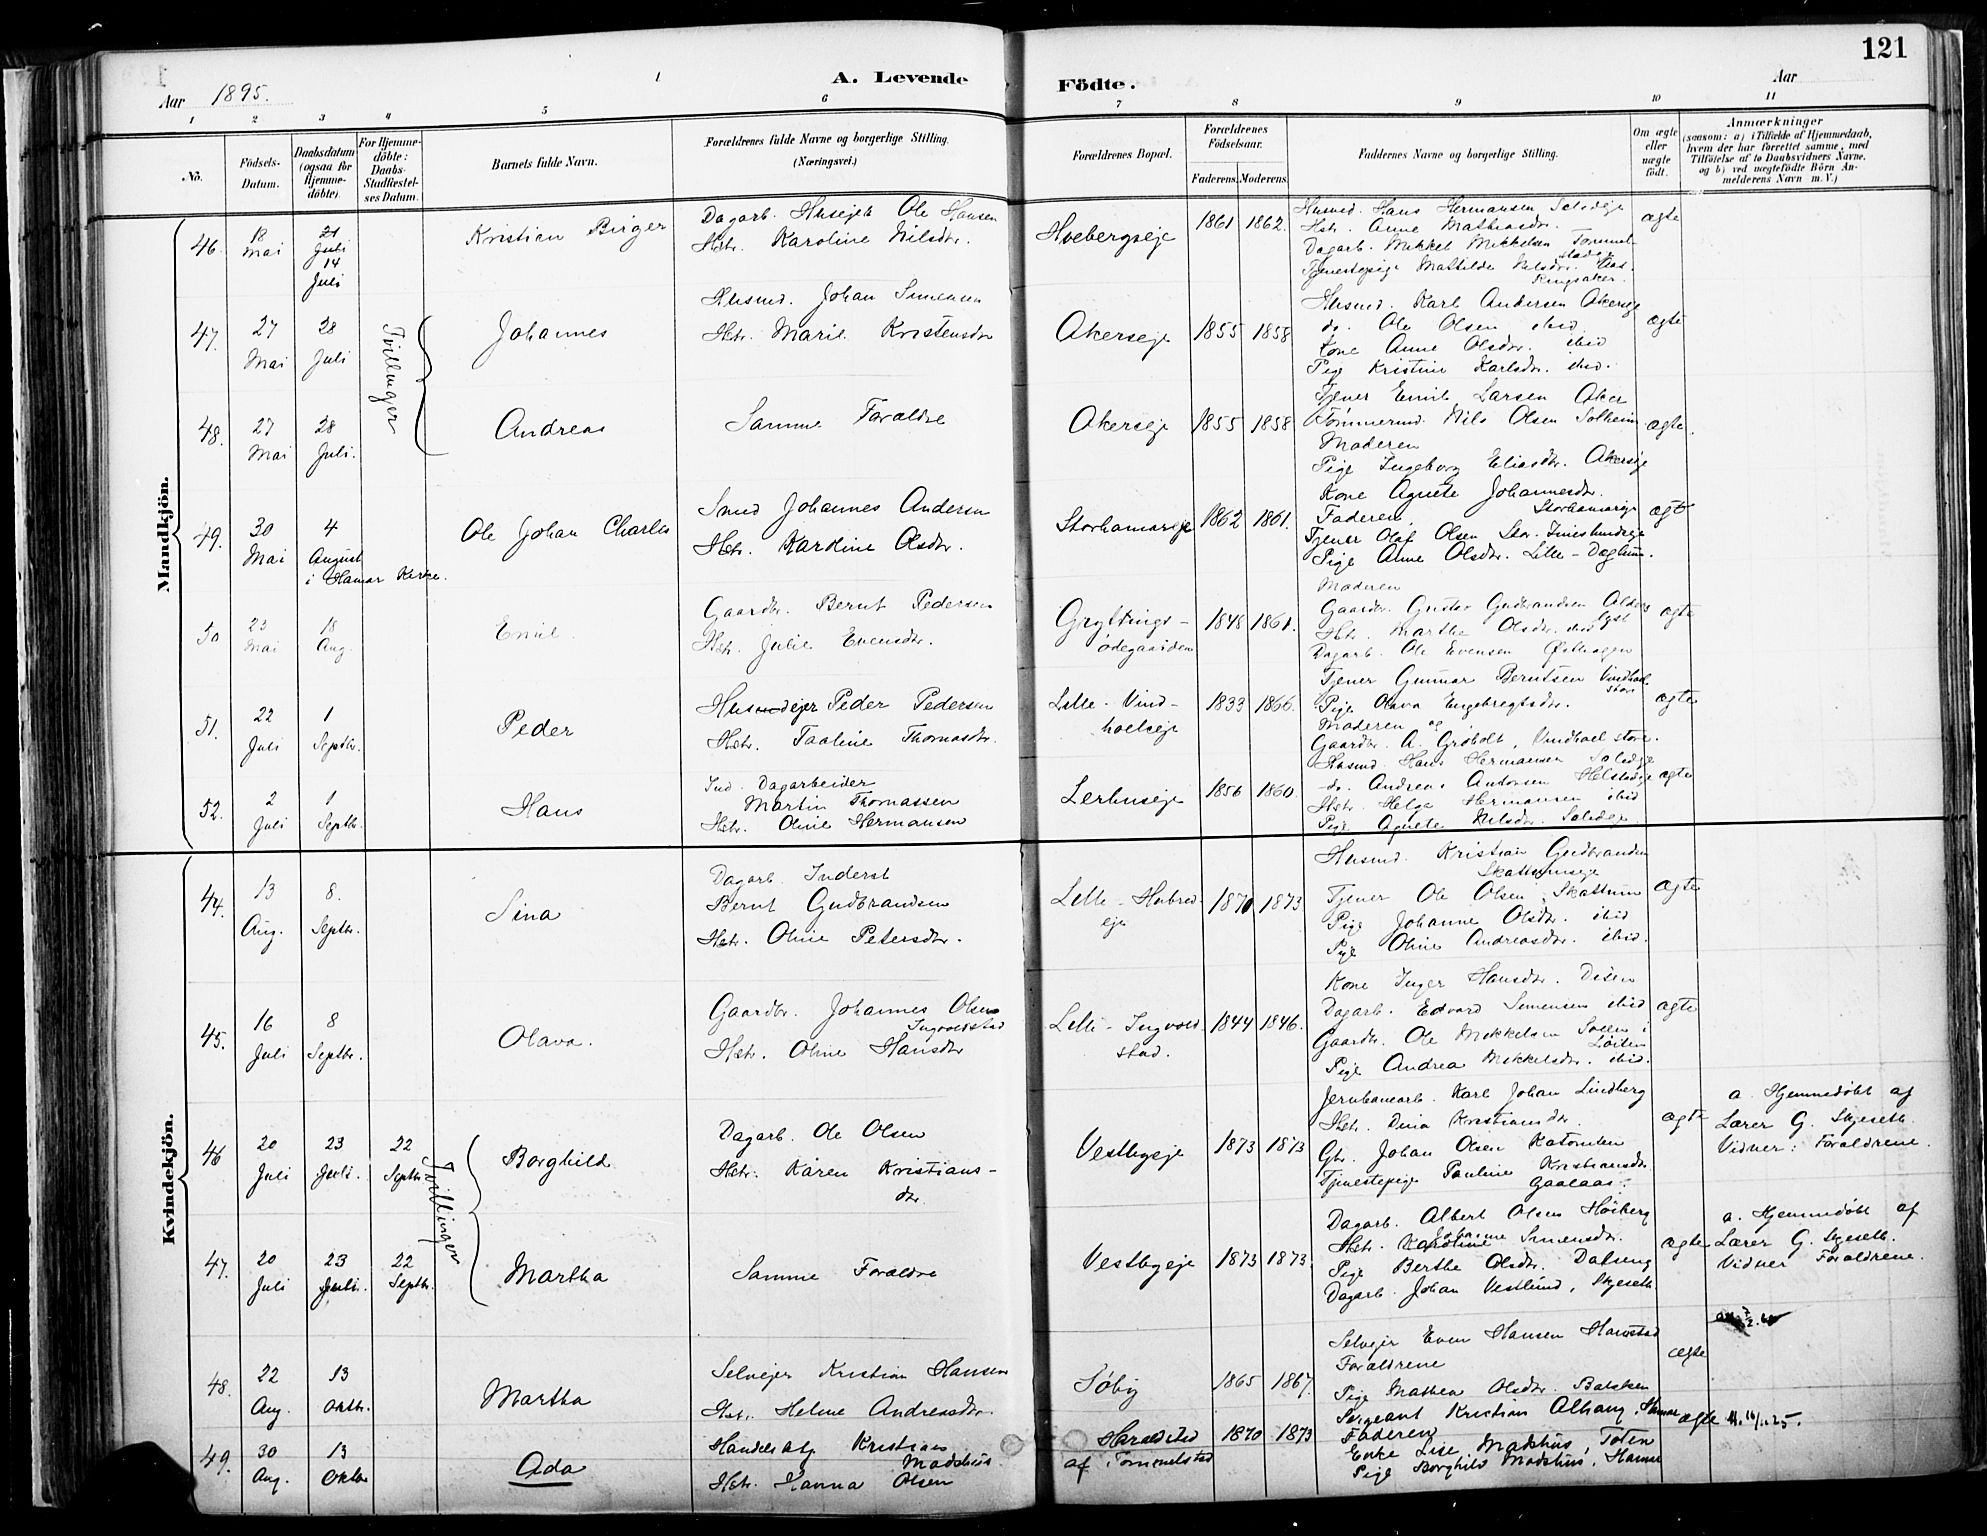 121
Aar 1895.
A. Levende Födte.
Aar
1 2 3 4 5 6 7 8 9 10 11
No.
Födsels-Datum.
Daabsdatum (ogsaa for Hjemme-döbte).
For Hjemme-döbte: Daabs-Stadfæstel-ses Datum.
Barnets fulde Navn.
Forældrenes fulde Navne og borgerlige Stilling. (Næringsvei.)
Forældrenes Bopæl.
Forældrenes Födselsaar.
Faderens. Moderens.
Faddernes Navne og borgerlige Stilling.
Om ægte eller uægte födt.
Anmærkninger
(saasom: a) i Tilfælde af Hjemmedaab, hvem der har forrettet samme, med Tilföielse af to Daabsvidners Navne, og b) ved uægtefödte Börn An-melderens Navn m. V.)
Mandkjön.
46. 18 Mai 21 Juli 14 Juli
Kristian Birger
Dagarb. Husejek Ole Hansen
Hstr. Karoline Nilsdtr.
Hvebergseje 1861 1862.
Husmd. Hans Hermansen Saledeje
Hstr. Anne Mathiasdtr.
Dagarb. Mikkel Mikkelsen Tommelstadeje
Tjenestepige Mathilde Nilsdtr. Ringsaker.
ægte
47. 27 Mai 28 Juli
Tvillinger
Johannes
Husmd. Johan Simensen
Hstr. Marie Kristensdtr
Akerseje 1855 1858
Husmd. Karl Andersen Akerseje
do. Ole Olsen ibid
Kone Anne Olsdtr. ibid
Pige Kristine Karlsdtr. ibid.
ægte
48. 27 Mai 28 Juli.
Andreas
Samme Forældre
Akerseje 1855 1858
Tjener Emil Larsen Aker
Tømmermd. Nils Olsen Solheim
Moderen
Pige Ingeborg Eliasdtr. Akerseje
ægte.
49. 30 Mai 4 August i Hamar Kirke.
Ole Johan Charles
Smed Johannes Andersen
Hstr. Karoline Olsdtr.
Storhamareje 1862 1861.
Kone Agnete Johannesdtr. Storhamareje
Faderen,
Tjener Olaf Olsen Stor-Imeslundeje
Pige Anne Olsdtr. Lille-Døglum.
ægte
50 23 Mai 18 Aug.
Emil.
Gaardbr. Bernt Pedersen
Hstr. Julie Evensdtr.
Gryttings-ødegaarden 1848 1861.
Moderen
Gaardbr. Gustav Gudbrandsen Alderslyst
Hstr. Marthe Olsdtr. ibid
Dagarb. Ole Evensen Østhagen
ægte
51. 22 Juli 1 Septbr.
Peder
Husmdejer Peder Pedersen
Hstr. Pauline Thomasdtr.
Lille-Vindhoelseje 1833 1866.
Tjener Gunnar Berntsen Vindhoel store
Pige Olava Engebregtsdtr.
Moderen og
Gaardbr. A. Grøholt, Vindhoel store.
ægte
52. 2 Juli 1 Septbr.
Hans
Ind. Dagarbeider
Martin Thomassen
Hstr. Oline Hermansen
Lerhuseje 1856 1860.
Husmd Hans Hermansen Saledeje
do. Andreas Andersen Helstadeje
Hstr. Helge Hermansen ibid
Pige Agnete Nilsdtr. Saledeje
ægte
Kvindekjön.
44. 13 Aug. 8. Septbr.
Sina
Dagarb. Inderst
Bernt Gudbrandsen
Hstr. Oline Petersdtr.
Lille-Hubred-eje 1870 1873
Husmd. Kristian Gudbrandsen Skattumseje
Tjener Ole Olsen Skattum
Pige Johanne Olsdtr. ibid
Pige Oline Andreasdtr. ibid.
ægte
45. 16 Juli 8 Septbr.
Olava.
Gaardbr. Johannes Olsen Ingvoldstad
Hstr. Oline Hansdtr
Lille-Ingvoldstad. 1844 1846.
Kone Inger Hansdtr. Disen
Dagarb. Edvard Simensen ibid
Gaardbr. Ole Mikkelsen Sollie i Løiten
Pige Andrea Mikkelsdtr. ibid.
ægte
46 20 Juli 23 Juli. 22 Septbr.
Tvillinger
Borghild
Dagarb. Ole Olsen
Hstr. Karen Kristians-dtr.
Vestbyeje 1873 1873
Jernbanearb. Karl Johan Lindberg
Hstr. Dina Kristiansdtr
Gbr. Johan Olsen Katomten
Tjenestepige Pauline Kristiansdtr. Gaalaas.
ægte
a. Hjemmedøbt af
Lærer G. Skjeseth.
Vidner: Forældrene.
47. 20 Juli 23 Juli. 22 Septbr.
Martha
Samme Forældre
Vestbyeje 1873 1873.
Dagarb. Albert Olsen Høiberg
Hstr. Karoline Johanne Simensdtr.
Pige Berthe Olsdtr. Dalseng
Dagarb. Johan Vestlund, Skjeseth.
ægte
a. Hjemmedøbt af
Lærer G. Skjeseth.
Vidner Forældrene.
48. 22 Aug. 13 Oktbr.
Martha
Selvejer Kristian Hansen
Hstr. Helene Andreasdtr.
Søby 1865 1867.
Selvejer Even Hansen Hamstad
Forældrene
Pige Mathea Olsdtr. Balsken
ægte
49. 30 Aug. 13 Oktbr
Ada
Handelsbtj. Kristian Madshus.
Hstr. Hanna Olsen
Haraldstad af Tommelstad 1870 1873
Sergeant Kristian Alhaug, Hamar
Faderen
Enke Lise Madshus, Toten
Pige Borghild Madshus, Hamar
ægte